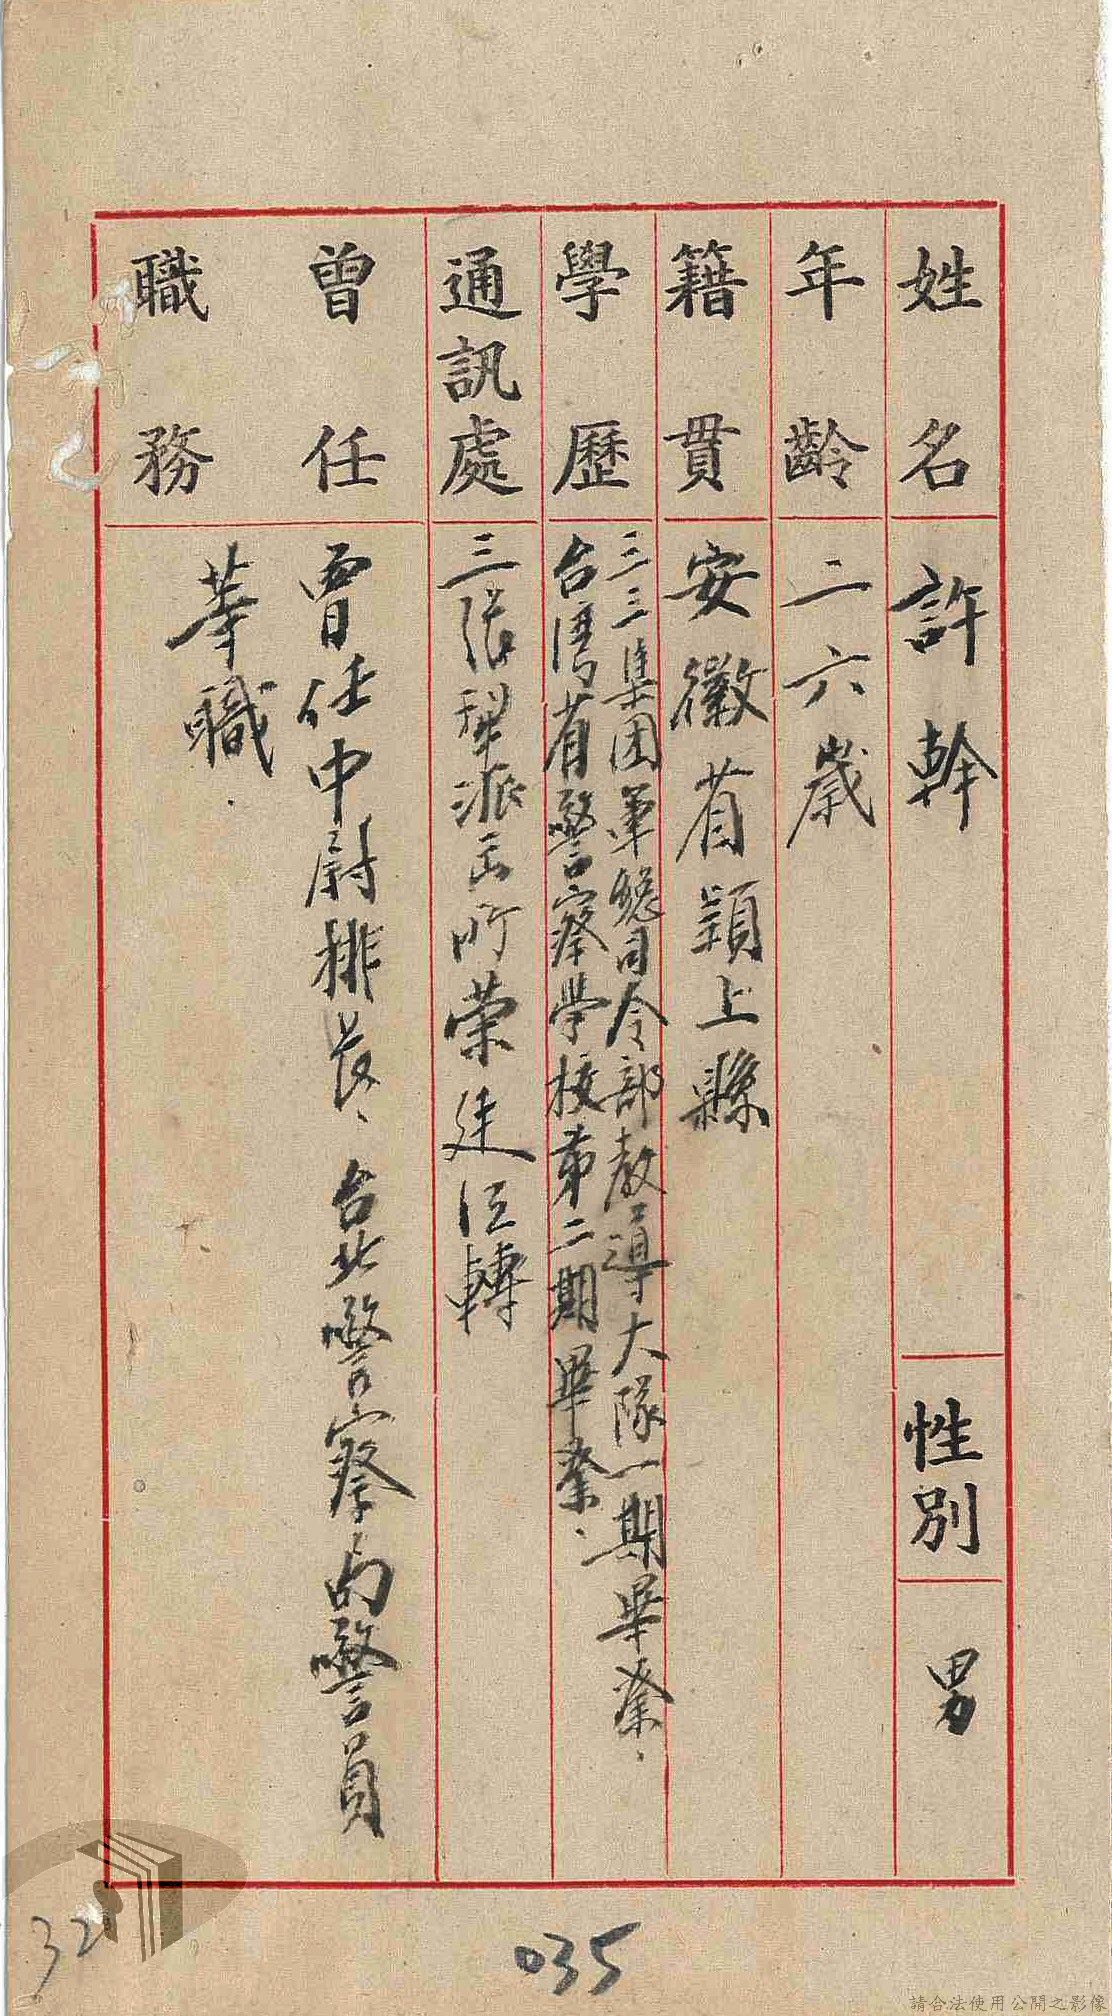 姓名 許幹
性別 男
年齡 二六歲
籍貫 安徽省潁上縣
學歷 三三集团軍總司令部教導大隊一期畢業、
台湾省警察学校第二期畢業、
通訊處 三張犁派出所荣廷 轉
曾任 曾任中尉排長、台北警察局警員
職務 等職.
32
035
請合法使用公開之影像